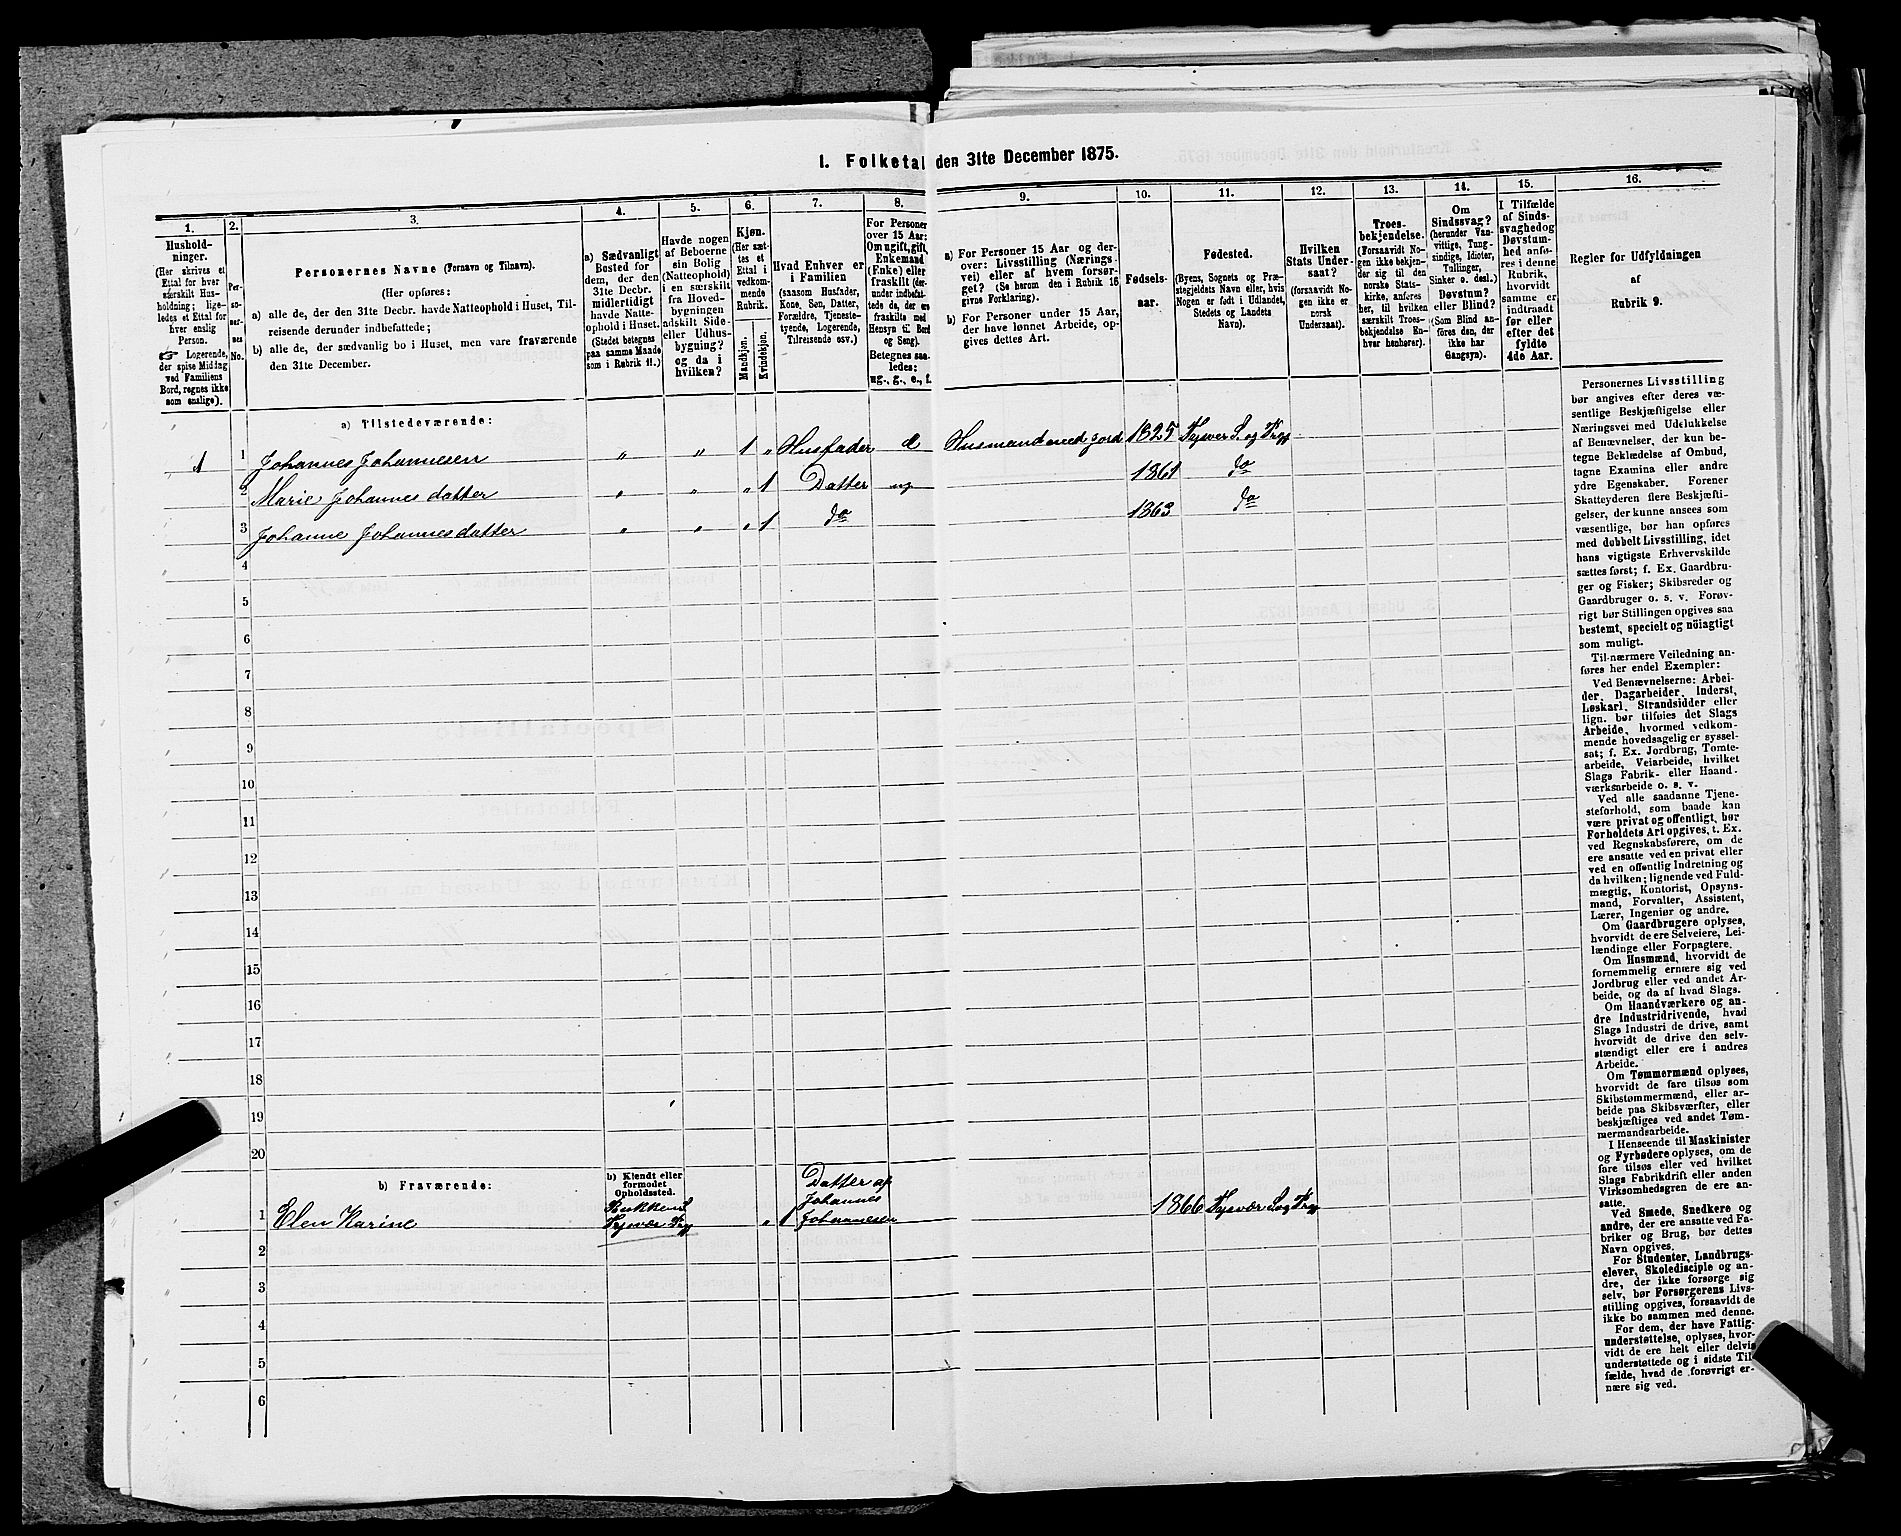 1. Folketal den 31te December 1875.
1.
Hushold-
ninger.
(Her skrives et
Ettal for hver
særskilt Hus-
holdning; lige-
ledes et Ettal for
hver enslig
Person.
☞ Logerende,
der spise Middag
ved Familiens
Bord, regnes ikke
som enslige).
2.
Per-
so-
ner-
nes
No.
3.
Personernes Navne (Fornavn og Tilnavn).
(Her opføres:
a) alle de, der den 31te Decbr. havde Natteophold i Huset, Til-
reisende derunder indbefattede;
b) alle de, der sædvanlig bo i Huset, men vare fraværende
den 31te December.
4.
a) Sædvanligt
Bosted for
dem, der den
31te Decbr.
midlertidigt
havde Natte-
ophold i Huset.
(Stedet betegnes
paa samme Maade
som i Rubrik 11.)
5.
Havde nogen
af Beboerne
sin Bolig
(Natteophold)
i en særskilt
fra Hoved-
bygningen
adskilt Side-
eller Udhus-
bygning?
og da i
hvilken?
6.
Kjøn.
(Her sæt-
tes et
Ettal i
vedkom-
mende
Rubrik.
Mandkjøn.
Kvindekjøn.
7.
Hvad Enhver er
i Familien
(saasom Husfader,
Kone, Søn, Datter,
Forældre, Tjeneste-
tyende, Logerende,
Tilreisende osv.)
8.
For Personer
over 15 Aar:
Om ugift, gift,
Enkemand
(Enke) eller
fraskilt (der-
under indbefat-
tede de, der ere
fraskilte med
Hensyn til Bord
og Seng).
Betegnes saa-
ledes:
ug., g., e., f.
9.
a) For Personer 15 Aar og der-
over: Livsstilling (Nærings-
vei) eller af hvem forsør-
get? (Se herom den i Rubrik 16
givne Forklaring).
b) For Personer under 15 Aar,
der have lønnet Arbeide, op-
gives dettes Art.
10.
Fødsels-
aar.
11.
Fødested.
(Byens, Sognets og Præ-
stegjeldets Navn eller, hvis
Nogen er født i Udlandet,
Stedets og Landets
Navn).
12.
Hvilken
Stats Under-
saat?
(forsaavidt No-
gen ikke er
norsk
Undersaat).
13.
Troes-
bekjendelse.
(Forsaavidt No-
gen ikke bekjen-
der sig til den
norske Stats-
kirke, anføres
her, til hvilken
særskilt Troes-
bekjendelse En-
hver henhører).
14.
Om
Sindssvag?
(herunder Van-
vittige, Tung-
sindige, Idioter,
Tullinger,
Sinker o. desl.)
Døvstum?
eller Blind?
(Som Blind an-
føres den, der
ikke har
Gangsyn).
15.
I Tilfælde
af Sinds-
svaghed og
Døvstum-
hed anfø-
res i denne
Rubrik,
hvorvidt
samme er
indtraadt
før eller
efter det
fyldte
4de Aar.
16.
Regler for Udfyldningen
af
Rubrik 9.
a) Tilstedeværende:
1 1 Johannes Johannesen " " 1 " Husfader e Husmand med jord 1825 Tysvær S. og Prgj
2 Marie Johannesdatter " " " 1 Datter ug 1861 do
3 Johanne Johannesdatter " " " 1 do 1863 do
4
5
6
7
8
9
10
11
12
13
14
15
16
17
18
19
20
b) Fraværende:
b) Kjendt eller
formodet
Opholdssted.
1 Elen Karine Tysvær Prgj " 1 Datter af
Johannes
Johannesen 1866 Tysvær S og Prgj
2
3
4
5
6
Personernes Livsstilling
bør angives efter deres væ-
sentlige Beskjæftigelse eller
Næringsvei med Udelukkelse
af Benævnelser, der kun be-
tegne Beklædelse af Ombud,
tagne Examina eller andre
ydre Egenskaber. Forener
Skatteyderen flere Beskjæfti-
gelser, der kunne ansees som
væsentlige, bør han opføres
med dobbelt Livsstilling, idet
hans vigtigste Erhvervskilde
sættes først; f. Ex. Gaardbru-
ger og Fisker; Skibsreder og
Gaardbruger o. s. v. Forøv-
rigt bør Stillingen opgives saa
bestemt, specielt og nöiagtigt
som muligt.
Til nærmere Veiledning an-
føres her endel Exempler:
Ved Benævnelserne: Arbei-
der, Dagarbeider, Inderst,
Løskarl, Strandsidder eller
lign. bør tilføies det Slags
Arbeide, hvormed vedkom-
mende hovedsagelig er syssel-
sat; f. Ex. Jordbrug, Tomte-
arbeide, Veiarbeide, hvilket
Slags Fabrik- eller Haand-
værksarbeide o. s. v.
Ved alle saadanne Tjene-
steforhold, som baade kan
være privat og offentligt, bør
Forholdets Art opgives, t. Ex.
ved Regnskabsførere, om de
ere ansatte ved en privat eller
ved en offentlig Indretning og
da hvilken; lignende ved Fuld-
mægtig, Kontorist, Opsyns-
mand, Forvalter, Assistent,
Lærer, Ingeniør og andre.
Om Gaardbrugere oplyses,
hvorvidt de ere Selveiere, Lei-
lændinge eller Forpagtere.
Om Husmænd, hvorvidt de
fornemmelig ernære sig ved
Jordbrug eller ved andet Ar-
beide, og da af hvad Slags.
Om Haandværkere og an-
dre Industridrivende, hvad
Slags Industri de drive, samt
hvorvidt de drive den selv-
stændigt eller ere i andres
Arbeide.
Om Tømmermænd oplyses,
hvorvidt de fare tilsøs som
Skibstømmermænd, eller ar-
beide paa Skibsværfter, eller
beskjæftiges ved andet Tøm-
mermandsarbeide.
I Henseende til Maskinister
og Fyrbødere oplyses, om de
fare tilsøs eller ved hvilket
Slags Fabrikdrift eller anden
Virksomhedsgren de ere an-
satte.
Ved Smede, Snedkere og
andre, der ere ansatte ved Fa-
briker og Brug, bør dettes
Navn opgives.
For Studenter, Landbrugs-
elever, Skoledisciple og an-
dre, der ikke forsørge sig
selv, bør Forsørgerens Livs-
stilling opgives, forsaavidt de
ikke bo sammen med denne.
For dem, der have Fattig-
understøttelse, oplyses, hvor-
vidt de ere helt eller delvis
understøttede og i sidste Til-
fælde, hvad de forøvrigt er-
nære sig ved.